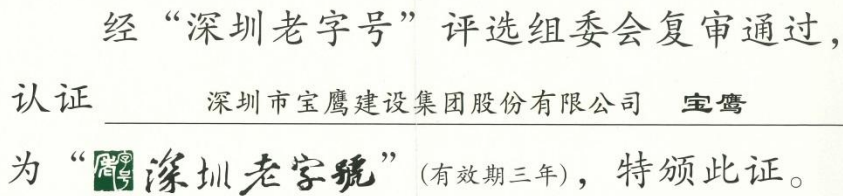 经“深圳老字号”评选组委会复审通过，
认证 深圳市宝鹰建设集团股份有限公司 宝鹰
为“深圳老字號”(有效期三年)，特颁此证。